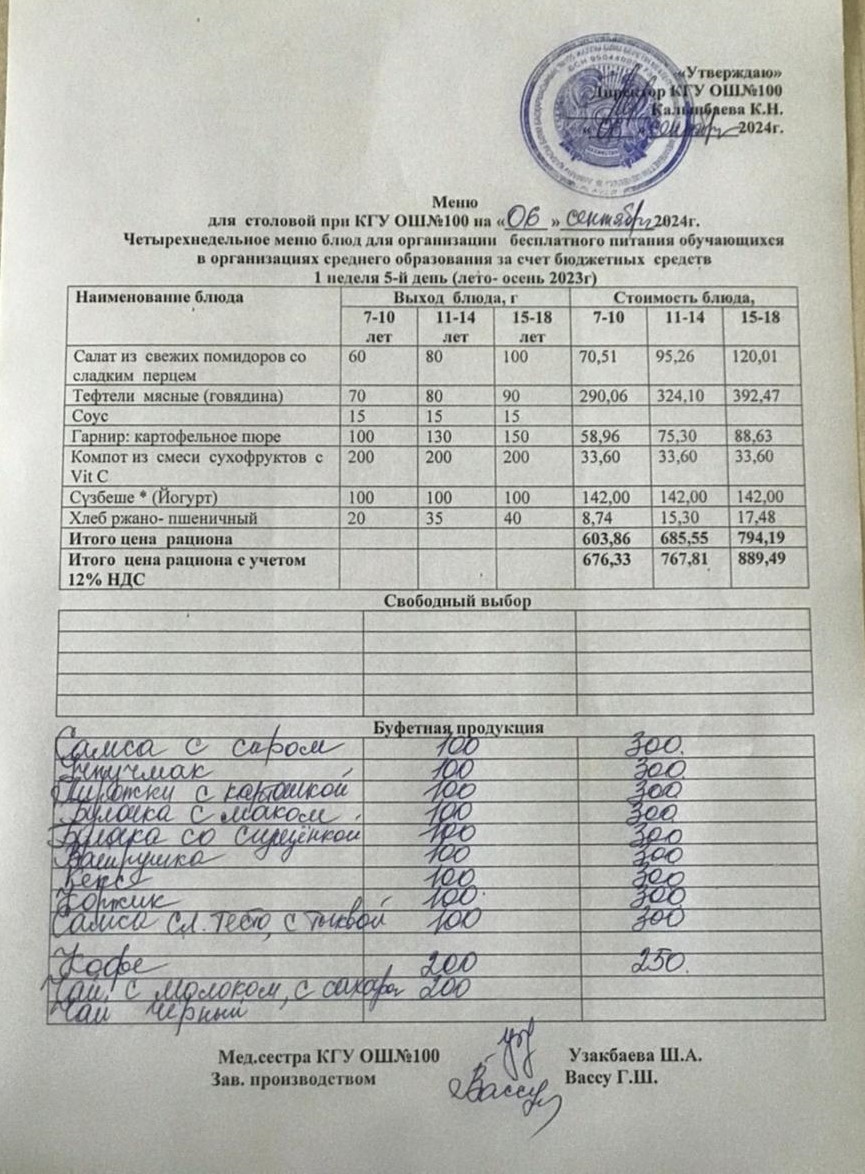 «Утверждаю»
Директор КГУ ОШ№100
Калынбаева К.Н.
« 06 » сентябрь 2024г.
Меню
для столовой при КГУ ОШ№100 на « 06 » сентябрь 2024г.
Четырехнедельное меню блюд для организации бесплатного питания обучающихся
в организациях среднего образования за счет бюджетных средств
1 неделя 5-й день (лето- осень 2023г)
Наименование блюда Выход блюда, г Стоимость блюда,
7-10 лет 11-14 лет 15-18 лет 7-10 11-14 15-18
Салат из свежих помидоров со сладким перцем 60 80 100 70,51 95,26 120,01
Тефтели мясные (говядина) 70 80 90 290,06 324,10 392,47
Соус 15 15 15
Гарнир: картофельное пюре 100 130 150 58,96 75,30 88,63
Компот из смеси сухофруктов с Vit C 200 200 200 33,60 33,60 33,60
Сүзбеше * (Йогурт) 100 100 100 142,00 142,00 142,00
Хлеб ржано- пшеничный 20 35 40 8,74 15,30 17,48
Итого цена рациона 603,86 685,55 794,19
Итого цена рациона с учетом 12% НДС 676,33 767,81 889,49
Свободный выбор
Буфетная продукция
Самса с сыром 100 300.
Эчпучмак 100 300
Пирожки с картошкой 100 300
Булочка с маком 100 300
Булочка со сгущёнкой 100 300
Ватрушка 100 300
Кекс 100 300
Коржик 100 300
Самса сл. тесто, с тыквой 100 300
Кофе 200 250.
Чай с молоком, с сахаром 200
Чай черный
Мед.сестра КГУ ОШ№100 Узакбаева Ш.А.
Зав. производством Вассу Вассу Г.Ш.